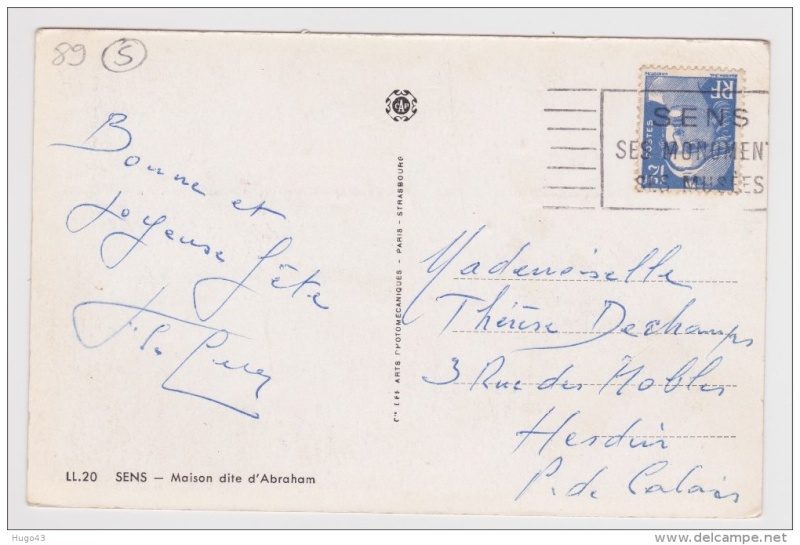 89 S
Bonne et
joyeuse fête
LL.20 SENS — Maison dite d'Abraham
CAP
ARTS PHOTOMÉCANIQUES - PARIS - STRASBOURG
RF
POSTES
SENS
SES MONUMENT
SES MUSEES
Mademoiselle
Thérèse Deschamps
3 Rue des Nobles
Hesdin
P. de Calais
Hugo43
www.delcampe.net